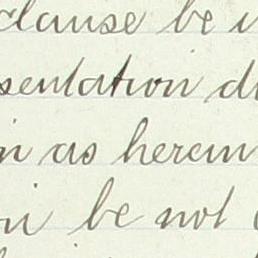 clause be
sentation
as herein
be not